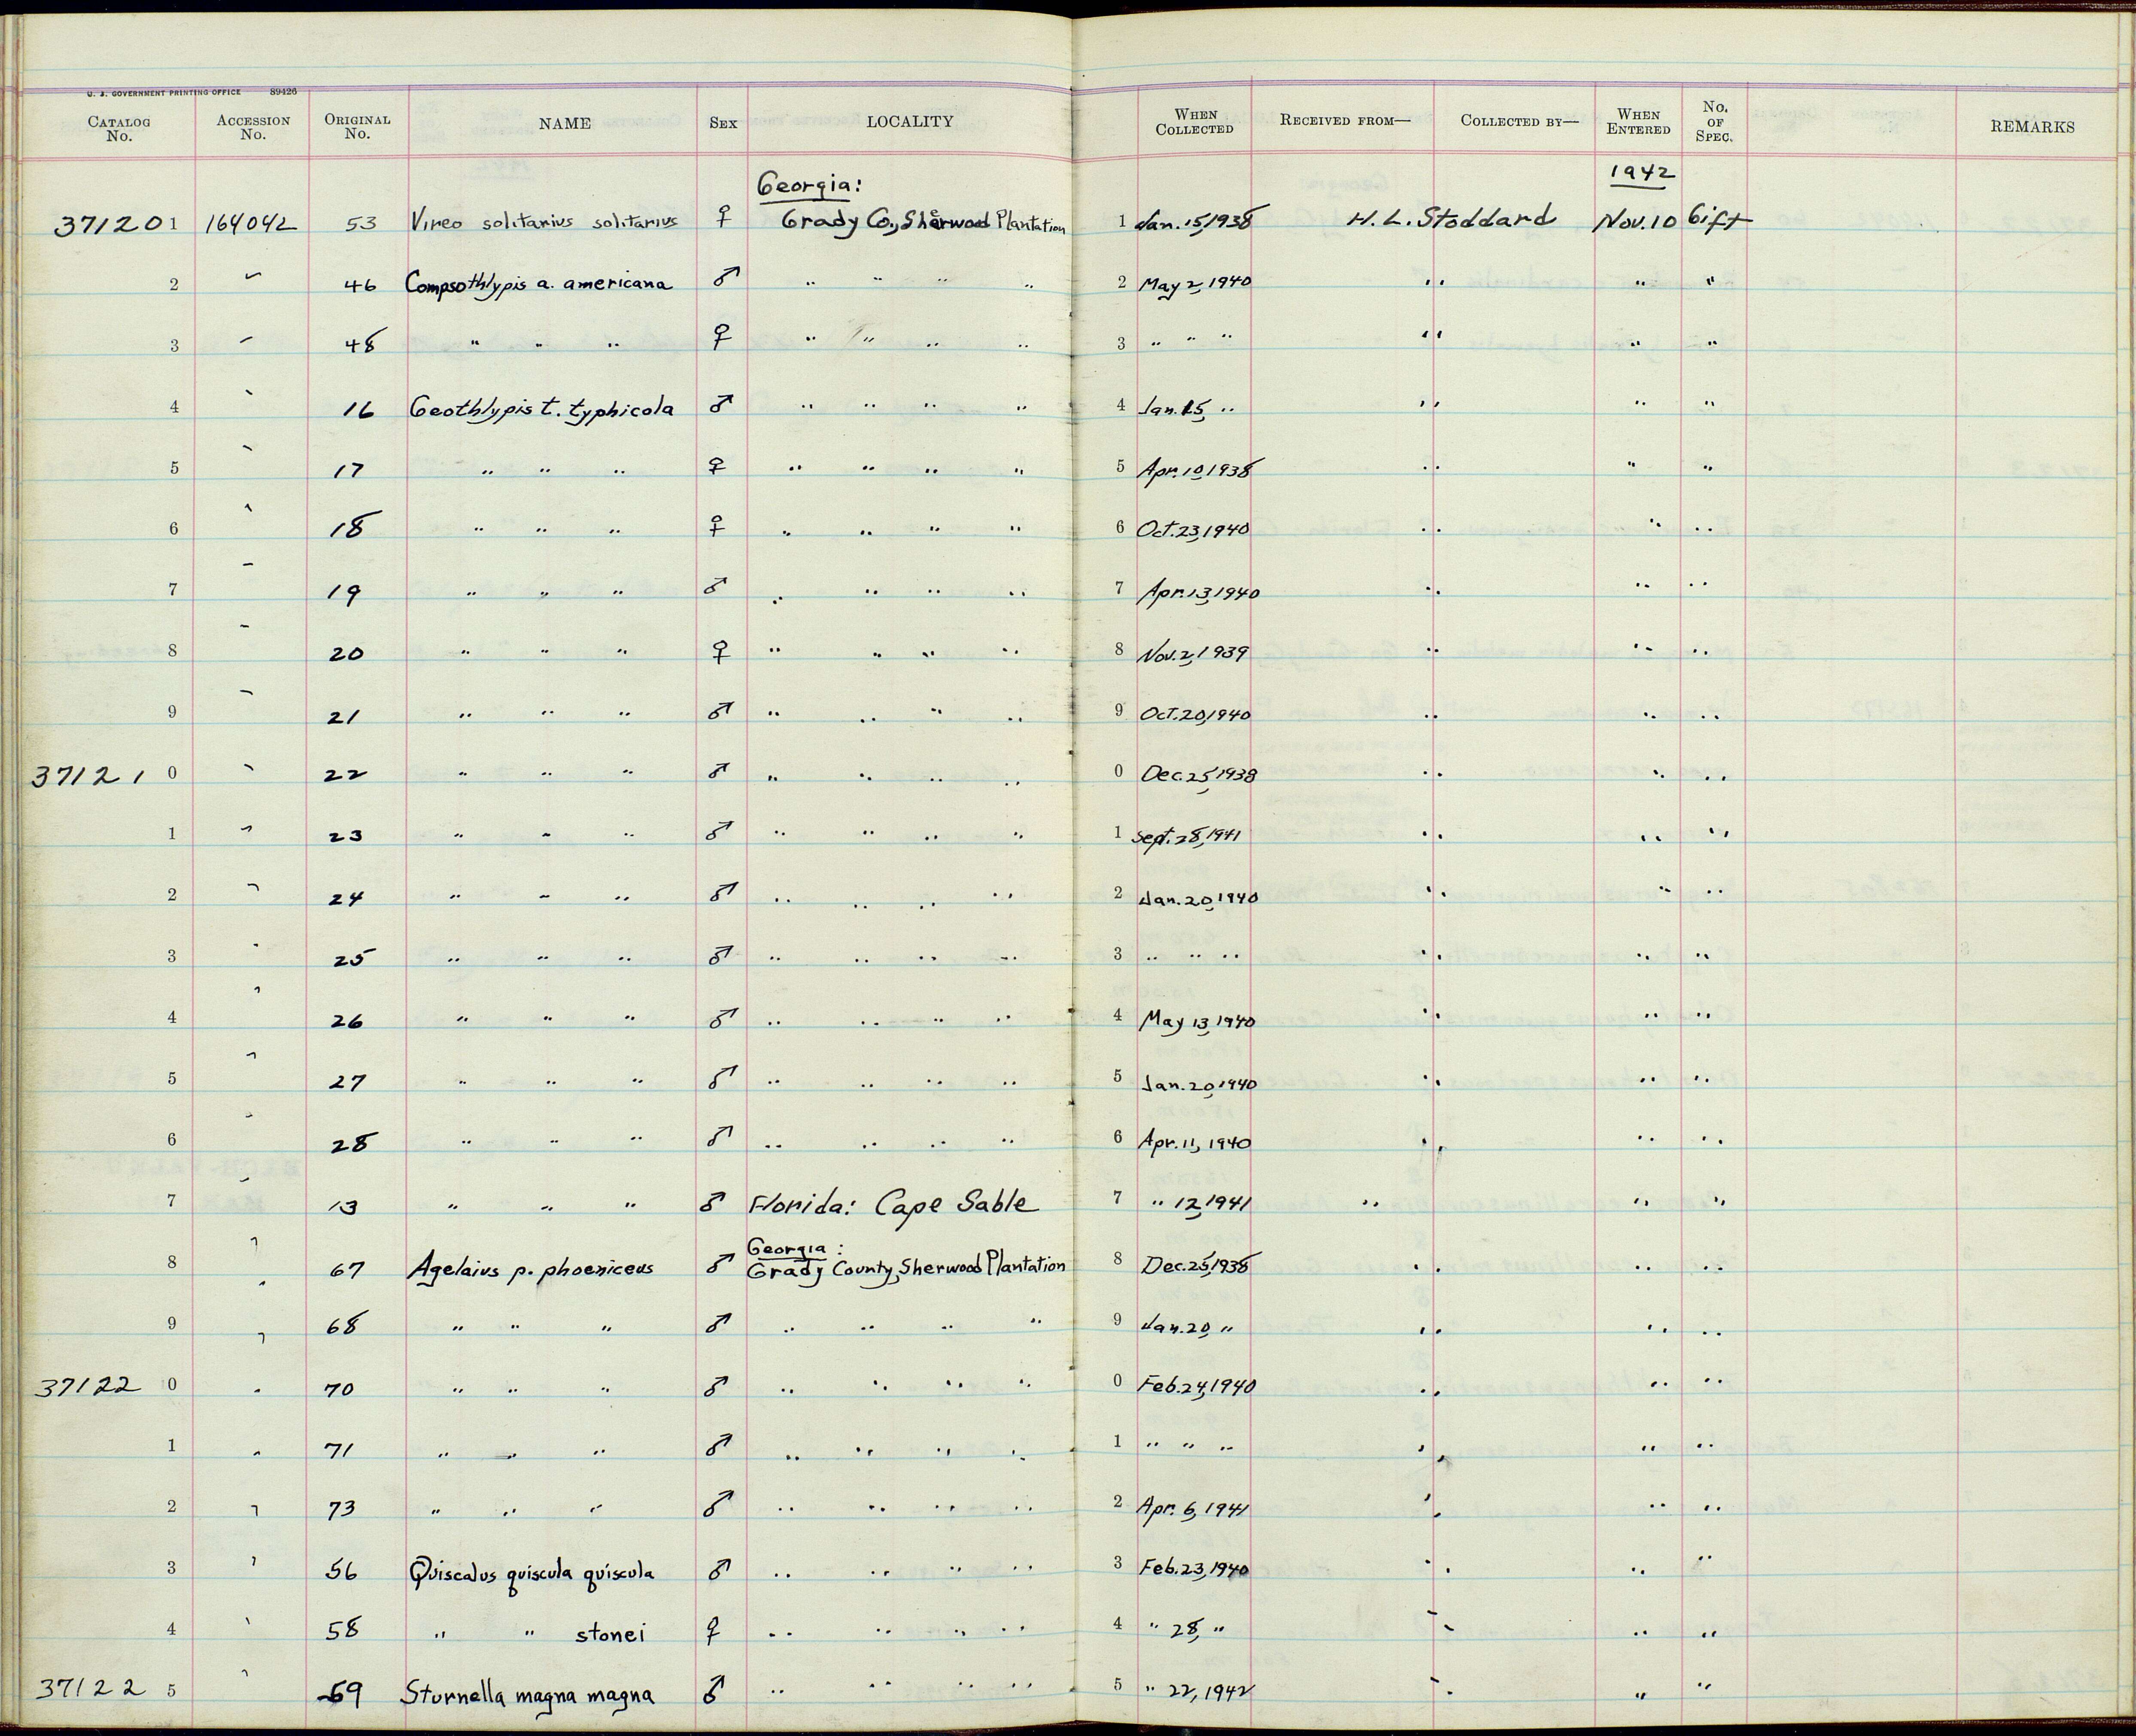 U. S. GOVERNMENT PRINTING OFFICE 89426
CATALOG No. ACCESSION No. ORIGINAL No. NAME SEX LOCALITY WHEN COLLECTED RECEIVED FROM— COLLECTED BY— WHEN ENTERED No. OF SPEC. REMARKS
Georgia: 1942
37120 1 164042 53 Vireo solitarius solitarius ♀ Grady Co., Sherwood Plantation 1 Jan. 15, 1938 H. L. Stoddard Nov. 10 Gift
2 " 46 Compsothlypis a. americana ♂ " " " " 2 May 2, 1940 " " "
3 " 48 " " " ♀ " " " " 3 " " " " " "
4 " 16 Geothlypis t. typhicola ♂ " " " " 4 Jan. 15, " " " "
5 " 17 " " " ♀ " " " " 5 Apr. 10, 1938 " " "
6 " 18 " " " ♀ " " " " 6 Oct. 23, 1940 " " "
7 " 19 " " " ♂ " " " " 7 Apr. 13, 1940 " " "
8 " 20 " " " ♀ " " " " 8 Nov. 2, 1939 " " "
9 " 21 " " " ♂ " " " " 9 Oct. 20, 1940 " " "
37121 0 " 22 " " " ♂ " " " " 0 Dec. 25, 1938 " " "
1 " 23 " " " ♂ " " " " 1 Sept. 28, 1941 " " "
2 " 24 " " " ♂ " " " " 2 Jan. 20, 1940 " " "
3 " 25 " " " ♂ " " " " 3 " " " " " "
4 " 26 " " " ♂ " " " " 4 May 13, 1940 " " "
5 " 27 " " " ♂ " " " " 5 Jan. 20, 1940 " " "
6 " 28 " " " ♂ " " " " 6 Apr. 11, 1940 " " "
7 " 13 " " " ♂ Florida: Cape Sable 7 " 12, 1941 " " "
Georgia:
8 " 67 Agelaius p. phoeniceus ♂ Grady County, Sherwood Plantation 8 Dec. 25, 1938 " " "
9 " 68 " " " ♂ " " " " 9 Jan. 20, " " " "
37122 0 " 70 " " " ♂ " " " " 0 Feb. 24, 1940 " " "
1 " 71 " " " ♂ " " " " 1 " " " " " "
2 " 73 " " " ♂ " " " " 2 Apr. 6, 1941 " " "
3 " 56 Quiscalus quiscula quiscula ♂ " " " " 3 Feb. 23, 1940 " " "
4 " 58 " " stonei ♀ " " " " 4 " 28, " " " "
37122 5 " 59 Sturnella magna magna ♂ " " " " 5 " 22, 1942 " " "